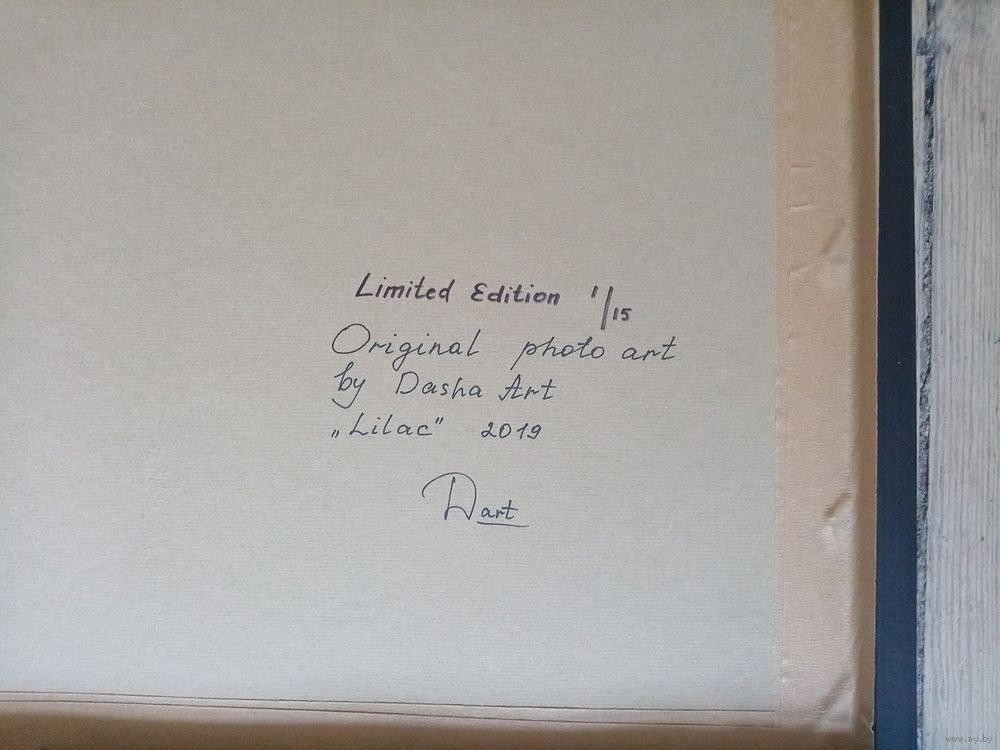 Limited Edition 1/15
Original photo art
by Dasha Art
„Lilac” 2019
Dart
www.ay.by